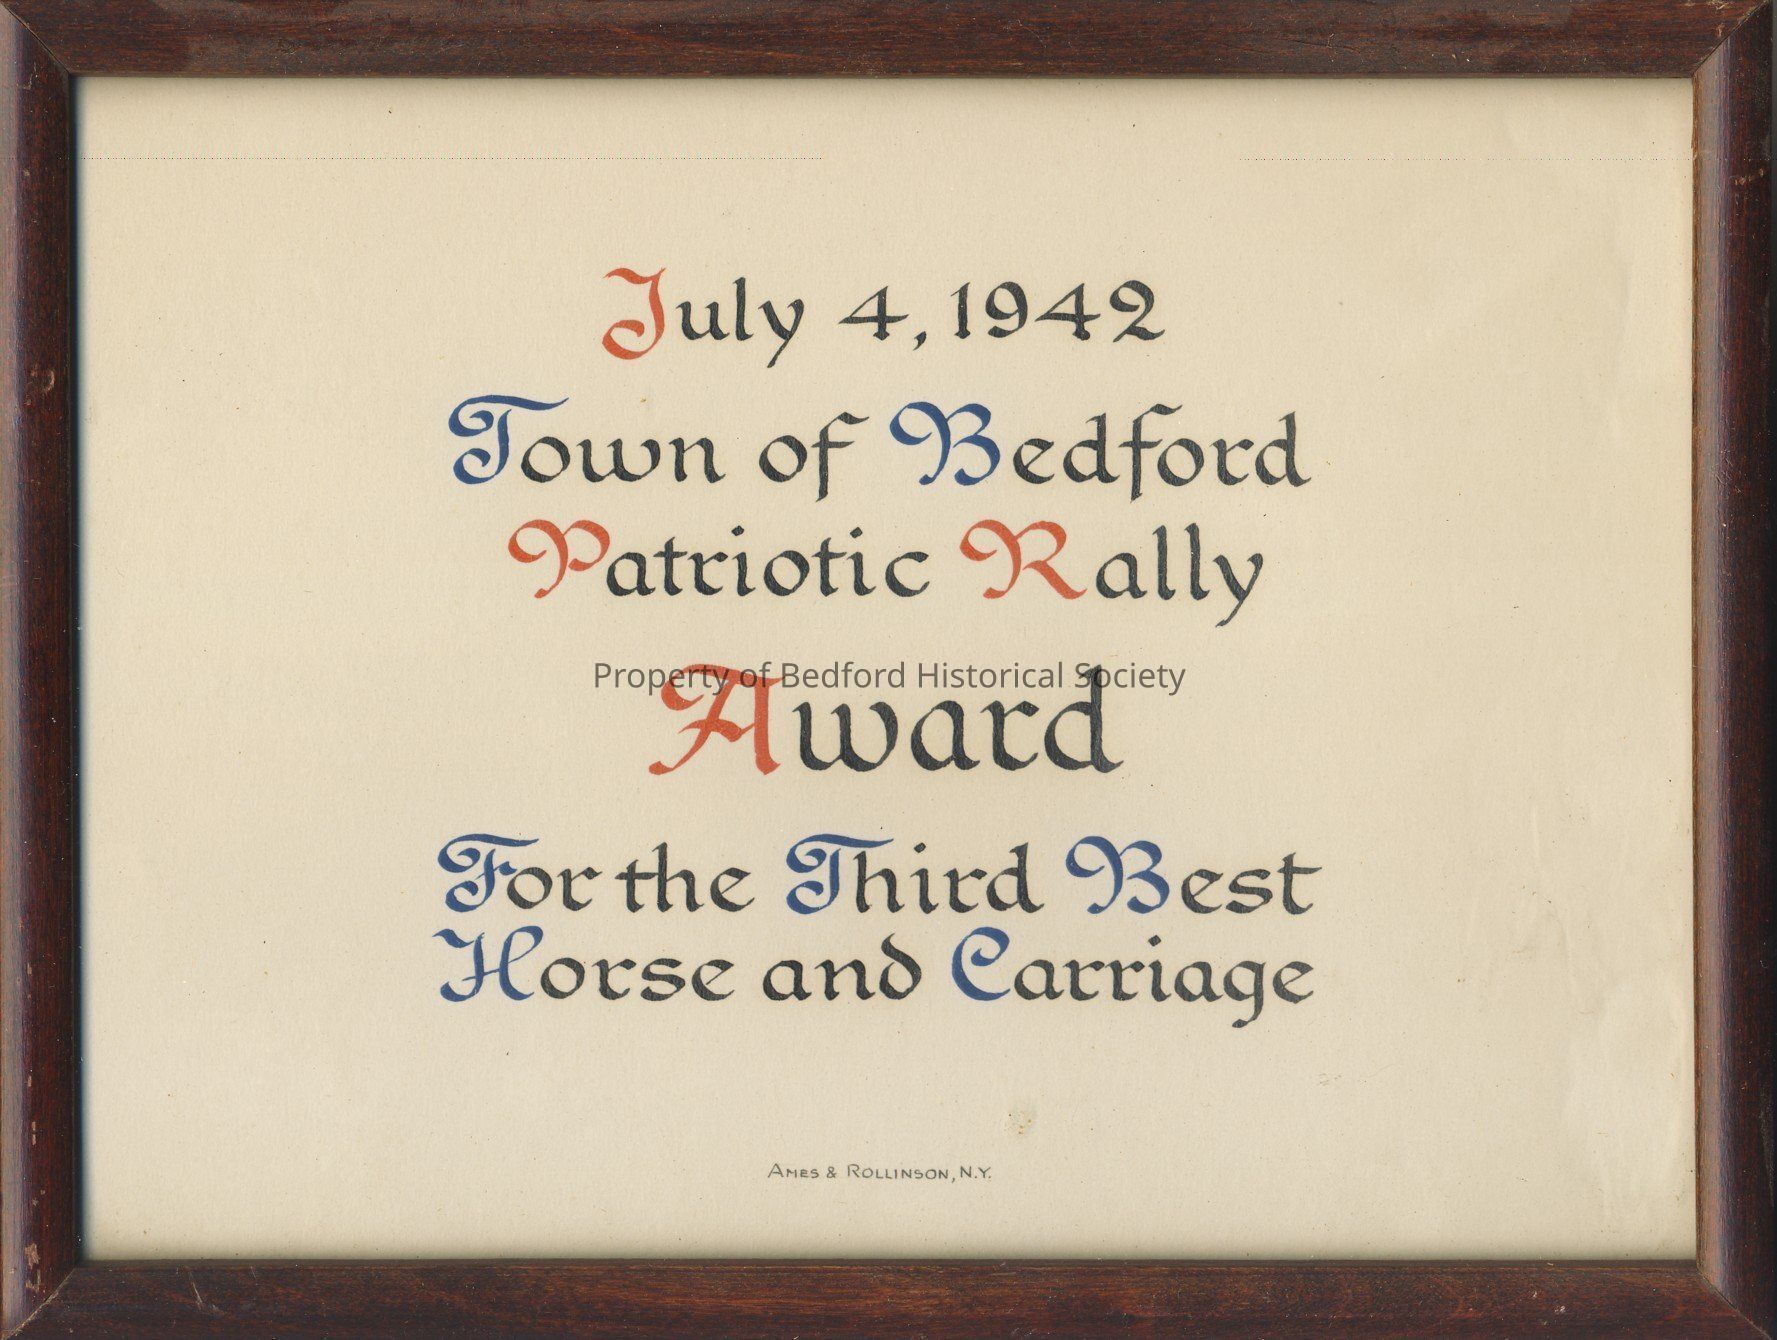 July 4, 1942
Town of Bedford
Patriotic Rally
Property of Bedford Historical Society
Award
For the Third Best
Horse and Carriage
AMES & ROLLINSON, N.Y.